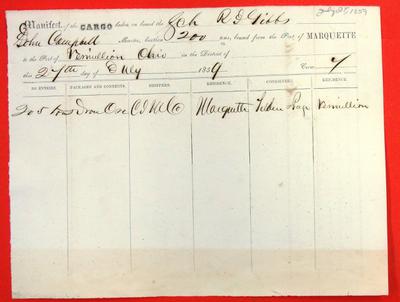 July 28 1859
Manifest of the CARGO laden on board the Sch R G Gibbs
John Campbell Master, burthen 200 tons, bound from the Port of MARQUETTE
to the Port of Vermillion Ohio in the District of
this 27th day of July 1859. Crew 7
NO. ENTRIES. PACKAGES AND CONTENTS. SHIPPERS. RESIDENCE. CONSIGNEES. RESIDENCE
205 tons Iron Ore C I M Co Marquette Page Vermillion